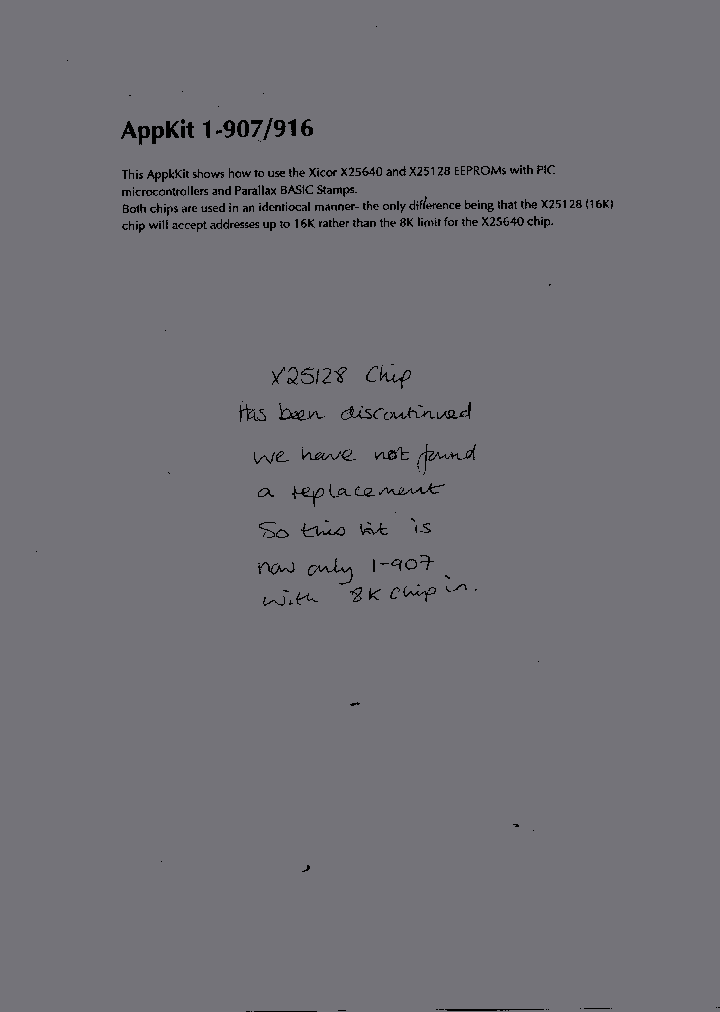 AppKit 1-907/916
This AppkKit shows how to use the Xicor X25640 and X25128 EEPROMs with PIC
microcontrollers and Parallax BASIC Stamps.
Both chips are used in an identiocal manner- the only difference being that the X25128 (16K)
chip will accept addresses up to 16K rather than the 8K limit for the X25640 chip.
X25128 Chip
Has been discontinued
we have not found
a replacement
So this kit is
now only 1-907
with 8K chip in.